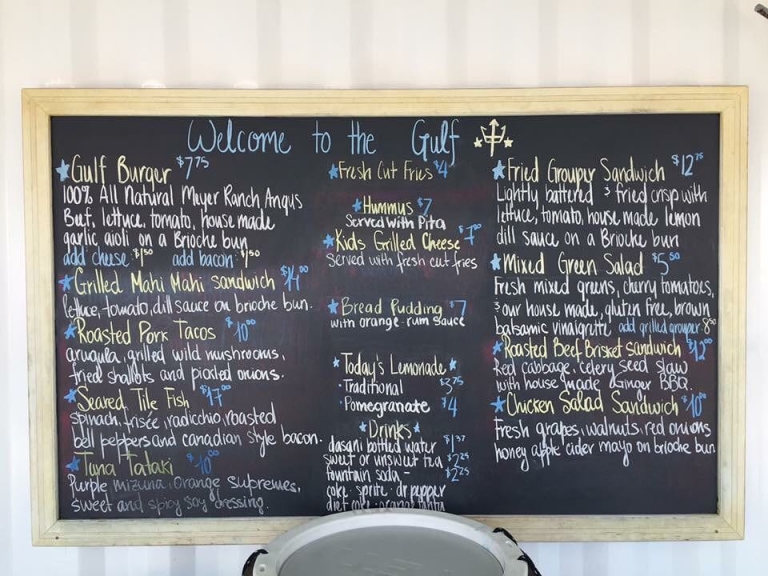 Welcome to the Gulf
Gulf Burger $7.75
100% All Natural Meyer Ranch Angus
Beef, lettuce, tomato, house made
garlic aioli on a Brioche bun
add cheese $1.50 add bacon $1.50
Grilled Mahi Mahi sandwich $14.00
lettuce, tomato, dill sauce on brioche bun.
Roasted Pork Tacos $10.00
arugula, grilled wild mushrooms,
fried shallots and pickled onions.
Seared Tile Fish $17.00
spinach, frisée, radicchio, roasted
bell peppers and canadian style bacon.
Tuna Tataki $10.00
Purple mizuna, orange supremes,
sweet and spicy soy dressing.
Fresh Cut Fries $4
Hummus $7
Served with Pita
Kids Grilled Cheese $7.00
served with fresh cut fries
Bread Pudding $7
with orange-rum sauce
Today's Lemonade
· Traditional $3.75
· Pomegranate $4
Drinks
dasani bottled water $1.37
sweet or unsweet tea $2.29
fountain soda- $2.25
coke sprite dr pepper
diet coke orange fanta
Fried Grouper Sandwich $12.75
Lightly battered & fried crisp with
lettuce, tomato, house made lemon
dill sauce on a Brioche bun
Mixed Green Salad $5.50
Fresh mixed greens, cherry tomatoes,
& our house made, gluten free, brown
balsamic vinaigrette add grilled grouper 8.00
Roasted Beef Brisket sandwich $12.00
Red cabbage, celery seed slaw
with house made Ginger BBQ.
Chicken Salad Sandwich $10.00
Fresh grapes, walnuts, red onions
honey apple cider mayo on brioche bun